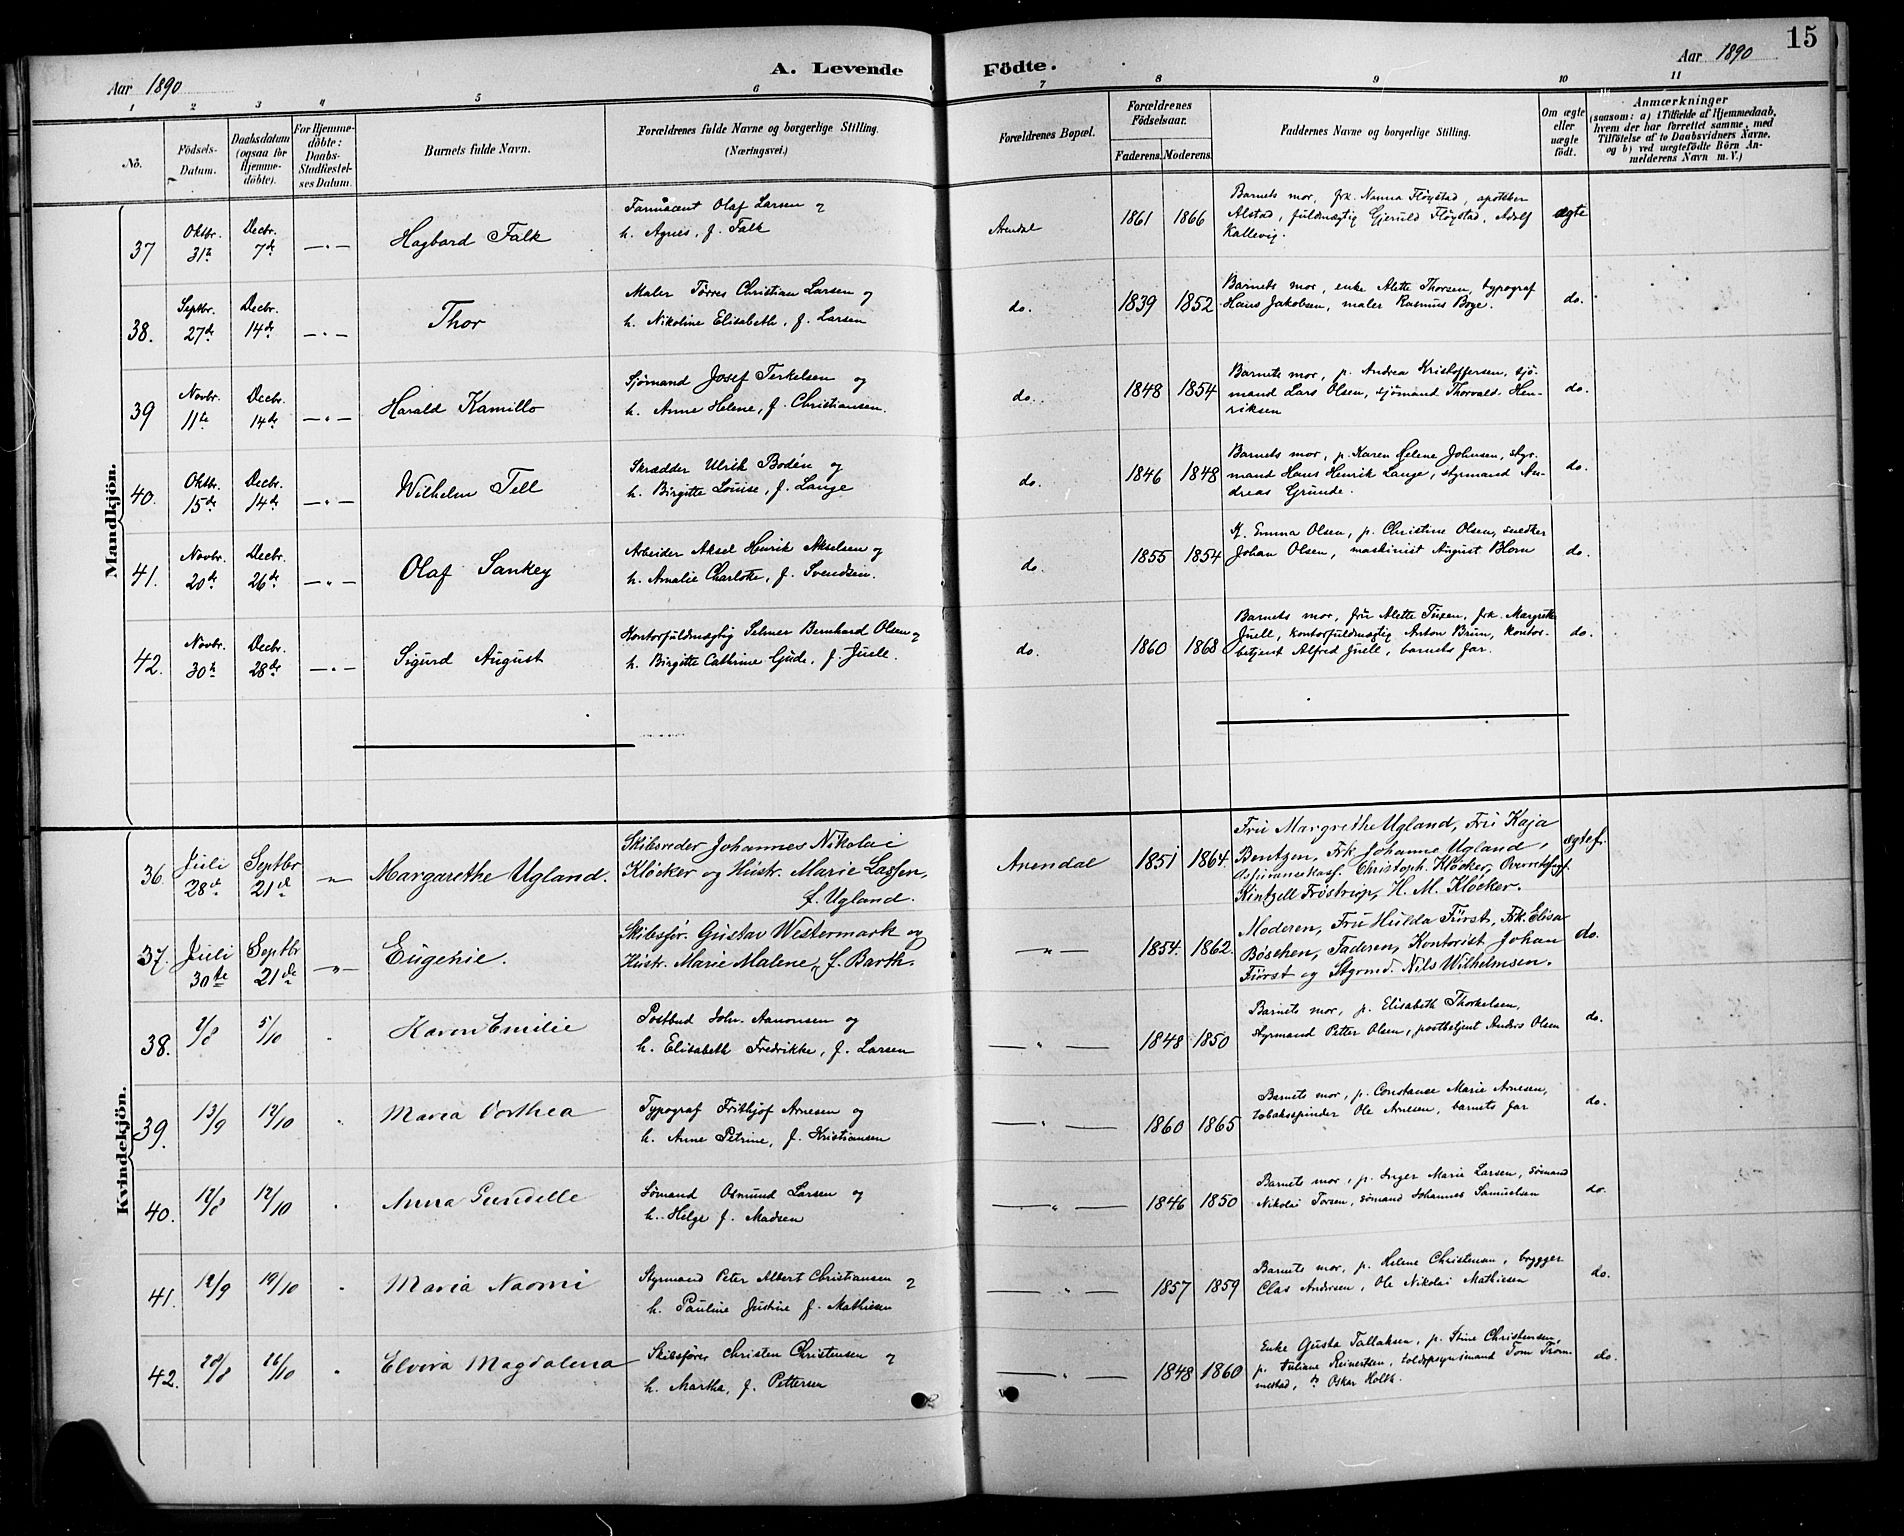 15
Aar 1890
A. Levende Födte.
Aar 1890
1 2 3 4 5 6 7 8 9 10 11
No. Födsels-Datum. Daabsdatum (ogsaa for Hjemmedöbte). For Hjemmedöbte: Daabs-Stadfæstelses Datum. Barnets fulde Navn. Forældrenes fulde Navne og borgerlige Stilling. (Næringsvei.) Forældrenes Bopæl. Forældrenes Födselsaar. Faderens. Moderens. Faddernes Navne og borgerlige Stilling. Om ægte eller uægte födt.
Anmærkninger
(saasom: a) i Tilfælde af Hjemmedaab,
hvem der har forrettet samme, med
Tilföielse af to Daabsvidners Navne,
og b) ved uægtefödte Börn Anmelderens
Navn m. V.)
Mandkjön.
37 Oktbr. 31te Decbr. 7de —"— Hagbard Falk
Farmaceut Olaf Larsen og
h. Agnes, f. Falk
Arendal 1861 1866
Barnets mor, frk. Nanna Fløystad, apoteker
Alstad, fuldmægtig Gjeruld Fløystad, Adolf
Kallevig.
ægte
38. Septbr. 27de Decbr. 14de —"— Thor
Maler Tørres Christian Larsen og
h. Nikoline Elisabeth, f. Larsen
do. 1839 1852
Barnets mor, enke Alette Thorsen, typograf
Hans Jakobsen, maler Rasmus Boye.
do.
39 Novbr. 11te Decbr. 14de —"— Harald Kamillo
Sjømand Josef Terkelsen og
h. Anne Helene, f. Christiansen.
do. 1848 1854
Barnets mor, p. Andrea Kristoffersen, sjø-
mand Lars Olsen, sjømand Thorvald Hen-
riksen
do.
40. Oktbr. 15de Decbr. 14de —"— Wilhelm Tell
Skrædder Ulrik Bodén og
h. Birgitte Louise, f. Lange
do. 1846 1848
Barnets mor, p. Karen Helene Johnsen, styr-
mand Hans Henrik Lange, styrmand An-
dreas Grunde.
do.
41. Novbr. 20de Decbr. 26de —"— Olaf Sankey
Arbeider Aksel Henrik Akselsen og
h. Amalie Charlotte, f. Svendsen.
do. 1855 1854
K. Emma Olsen, p. Christine Olsen, snedker
Johan Olsen, maskinist August Blom
do.
42. Novbr. 30te Decbr. 28de —"— Sigurd August
Kontorfuldmægtig Selmer Bernhard Olsen og
h. Birgitte Cathrine Gude, f. Juell.
do. 1860 1868
Barnets mor, fru Alette Tueen, frk. Margrethe
Juell, kontorfuldmægtig Anton Brun, kontor-
betjent Alfred Juell, barnets far.
do.
Kvindekjön.
36. Juli 28de Septbr 21de —"— Margarethe Ugland.
Skibsreder Johannes Nikolai
Kløcker og Hustr. Marie Lassen,
f. Ugland.
Arendal 1851 1864.
Fru Margrethe Ugland, Fru Kaja
Bentzen, Frk. Johanne Ugland,
Christoph. Kløcker,
Kintzell Frøstrup, H. M. Kløcker.
ægtef.
37. Juli 30te Septbr 21de —"— Eugenie.
Skibsfør. Gustav Westermark og
Hustr. Marie Malene, f. Barth.
—"— 1854. 1862.
Moderen, Fru Hulda Fürst, Frk. Elisa
Bøschen, Faderen, Kontorist Johan
Fürst og Styrmd. Nils Wilhelmsen.
do.
38. 2/8 5/10 " Karen Emilie
Postbud John. Aanonsen og
h. Elisabeth Fredrikke, f. Larsen
—"— 1848 1850
Barnets mor, p. Elisabeth Thorkelsen,
styrmand Petter Olsen, postbetjent Anders Olsen
do.
39. 13/9 12/10 " Maria Dorthea
Typograf Frithjof Arnesen og
h. Anne Petrine, f. Kristiansen
—"— 1860 1865
Barnets mor, p. Constance Marie Arnesen,
tobakspinder Ole Arnesen, barnets far
do.
40. 12/8 12/10 " Anna Gundelle
Sømand Osmund Larsen og
h. Helge f. Madsen
—"— 1846 1850
Barnets mor, p. Inger Marie Larsen, sømand
Nikolai Torsen, sømand Johannes Samuelsen
do.
41. 12/9 19/10 " Maria Naomi
Styrmand Peter Albert Christiansen og
h. Pauline Justine f. Mathisen
—"— 1857 1859
Barnets mor, p. Helene Christensen, brygger
Clas Andersen, Ole Nikolai Mathiesen
do.
42. 28/8 26/10 " Elvira Magdalena
Skibsfører Christen Christensen og
h. Martha, f. Pettersen
—"— 1848 1860
Enke Gusta Tallaksen, p. Stine Christensen,
p. Juliane Reinertsen, toldopsynsmand Tom Trom-
mestad, do Oskar Holth.
do.